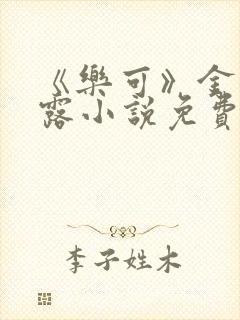 《樂可》金
露小説免費
李子姓木